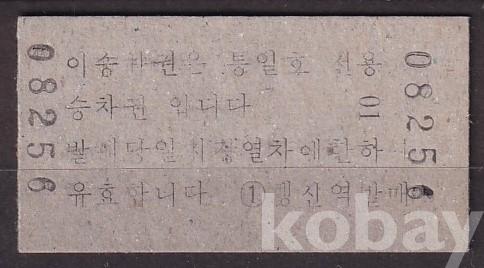 08256
이 승차권은 통일호 전용
승차권 입니다
01
발매당일 지정열차에 한하여
유효합니다 ① 역발매
08256
kobay